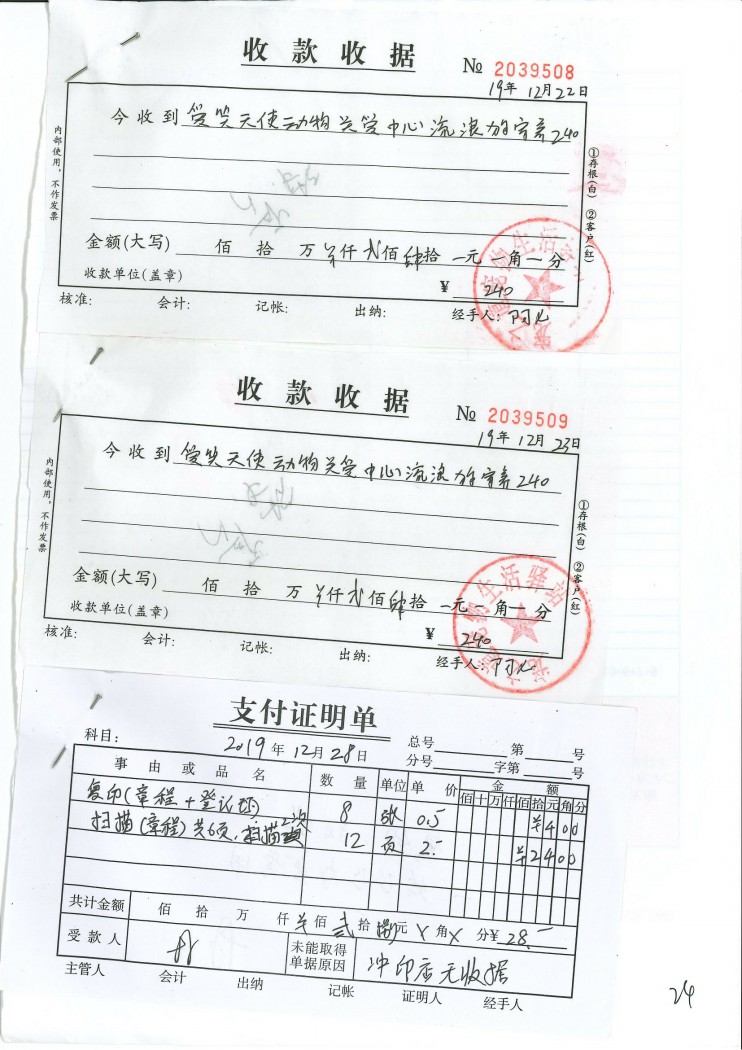 收款收据
№ 2039508
19年 12月22日
今收到 爱笑天使动物关爱中心流浪狗寄养240
内部使用，不作发票
①存根(白) ②客户(红)
金额(大写) 佰 拾 万 ¥仟 贰佰肆拾 元 角 分
收款单位(盖章) ¥ 240
核准: 会计: 记帐: 出纳: 经手人:
收款收据
№ 2039509
19年 12月 23日
今收到 爱笑天使动物关爱中心流浪狗寄养240
内部使用，不作发票
①存根(白) ②客户(红)
金额(大写) 佰 拾 万 ¥仟 贰佰肆拾 元 角 分
收款单位(盖章) ¥ 240
核准: 会计: 记帐: 出纳: 经手人:
支付证明单
科目: 2019年12月28日 总号 第 号
分号 字第 号
事由或品名 数量 单位 单价 金额
佰十万仟佰拾元角分
复印(章程+登记证) 8 张 0.5 ¥400
扫描(章程)共6页,扫描2次 12 页 2.- ¥2400
共计金额 佰 拾 万 仟 ¥佰 贰拾捌元 X角X分 ¥ 28.-
受款人 未能取得单据原因 冲印店无收据
主管人 会计 出纳 记帐 证明人 经手人
24